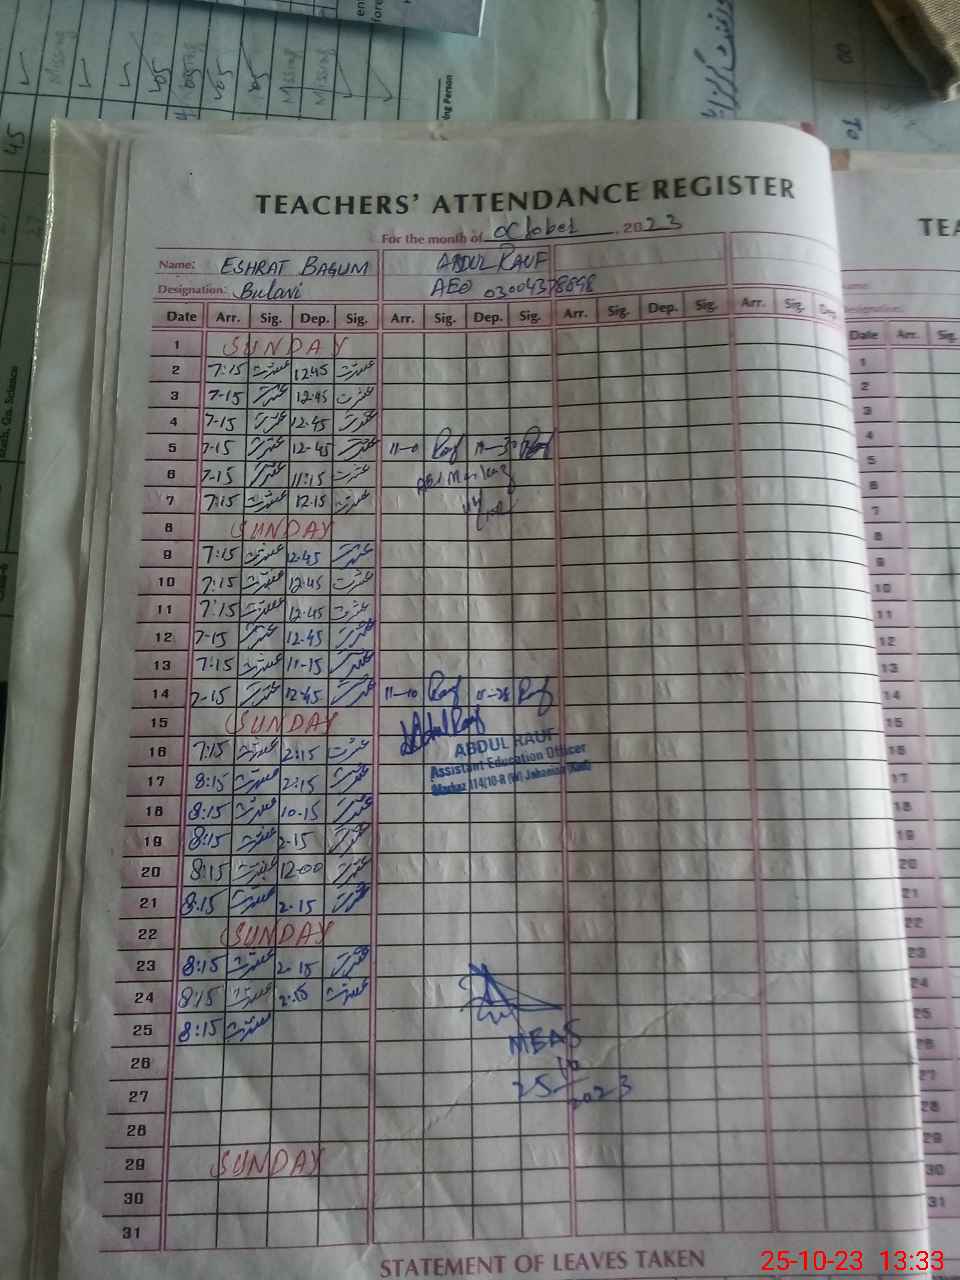 TEACHERS' ATTENDANCE REGISTER
For the month of October, 2023
Name: ESHRAT BAGUM ABDUL RAUF
Designation: Bulavi AEO 03004378898
Date Arr. Sig. Dep. Sig. Arr. Sig. Dep. Sig. Arr. Sig. Dep. Sig. Arr. Sig. Dep.
1 SUNDAY
2 7:15 عشرت 12:45 عشرت
3 7-15 عشرت 12:45 عشرت
4 7-15 عشرت 12-45 عشرت
5 7-15 عشرت 12-45 عشرت Rauf Rauf
6 7-15 عشرت 11:15 عشرت
7 7:15 عشرت 12.15 عشرت
8 SUNDAY
9 7:15 عشرت 12-45 عشرت
10 7:15 عشرت 12:45 عشرت
11 7:15 عشرت 12.45 عشرت
12 7-15 عشرت 12-45 عشرت
13 7:15 عشرت 11-15 عشرت
14 7-15 عشرت 12:45 عشرت 11-10 Rauf Rauf
15 SUNDAY Abdul Rauf
ABDUL RAUF
16 7:15 عشرت 2:15 عشرت
Assistant Education Officer
17 8:15 عشرت 2:15 عشرت
Markaz 114/10-R (W) Jahanian
18 8:15 عشرت 10-15 عشرت
19 8:15 عشرت 2-15 عشرت
20 8:15 عشرت 12-00 عشرت
21 8:15 عشرت 2-15 عشرت
22 SUNDAY
23 8:15 عشرت 2-15 عشرت
24 8:15 عشرت 2:15 عشرت
25 8:15 عشرت
MEA
26
25/10/2023
27
28
29 SUNDAY
30
31
STATEMENT OF LEAVES TAKEN
25-10-23 13:33